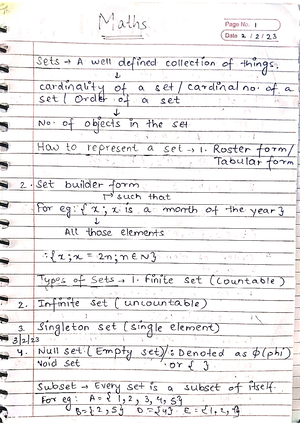 Maths
Page No. 1
Date 2/2/23
Sets → A well defined collection of things.
↓
cardinality of a set / cardinal no. of a
set / Order of a set
↓
No. of objects in the set
How to represent a set → 1. Roster form/
Tabular form
2. Set builder form
↱ such that
For eg: { x ; x is a month of the year }
↓
All those elements
:{ x ; x = 2n ; n ∈ N }
Types of Sets → 1. Finite set (Countable)
2. Infinite set (uncountable)
3. Singleton set (single element)
3/2/23
4. Null set (Empty set)/ : Denoted as ϕ(phi)
Void set or { }
Subset → Every set is a subset of itself.
For eg: A = { 1, 2, 3, 4, 5 }
B = { 2, 5 } D = { 4 } E = { 1, 2, 4 }